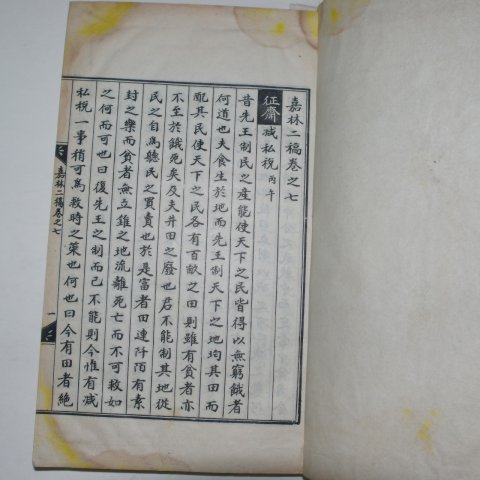 嘉林二稿卷之七
征齋 減私稅 丙午
昔先王制民之產能使天下之民皆得以無窮餓者
何道也夫食生於地而先王制天下之地均其田而
配其民使天下之民各有百畝之田則雖有貧者亦
不至於餓死矣及夫井田之廢也君不能制其地從
民之自爲聽民之買賣也於是富者田連阡陌有素
封之樂而貧者無立錐之地流離死亡而不可救如
之何而可也曰復先王之制而已不能則今惟有減
私稅一事稍可爲救時之策也何也曰今有田者絶
嘉林二稿卷之七
一